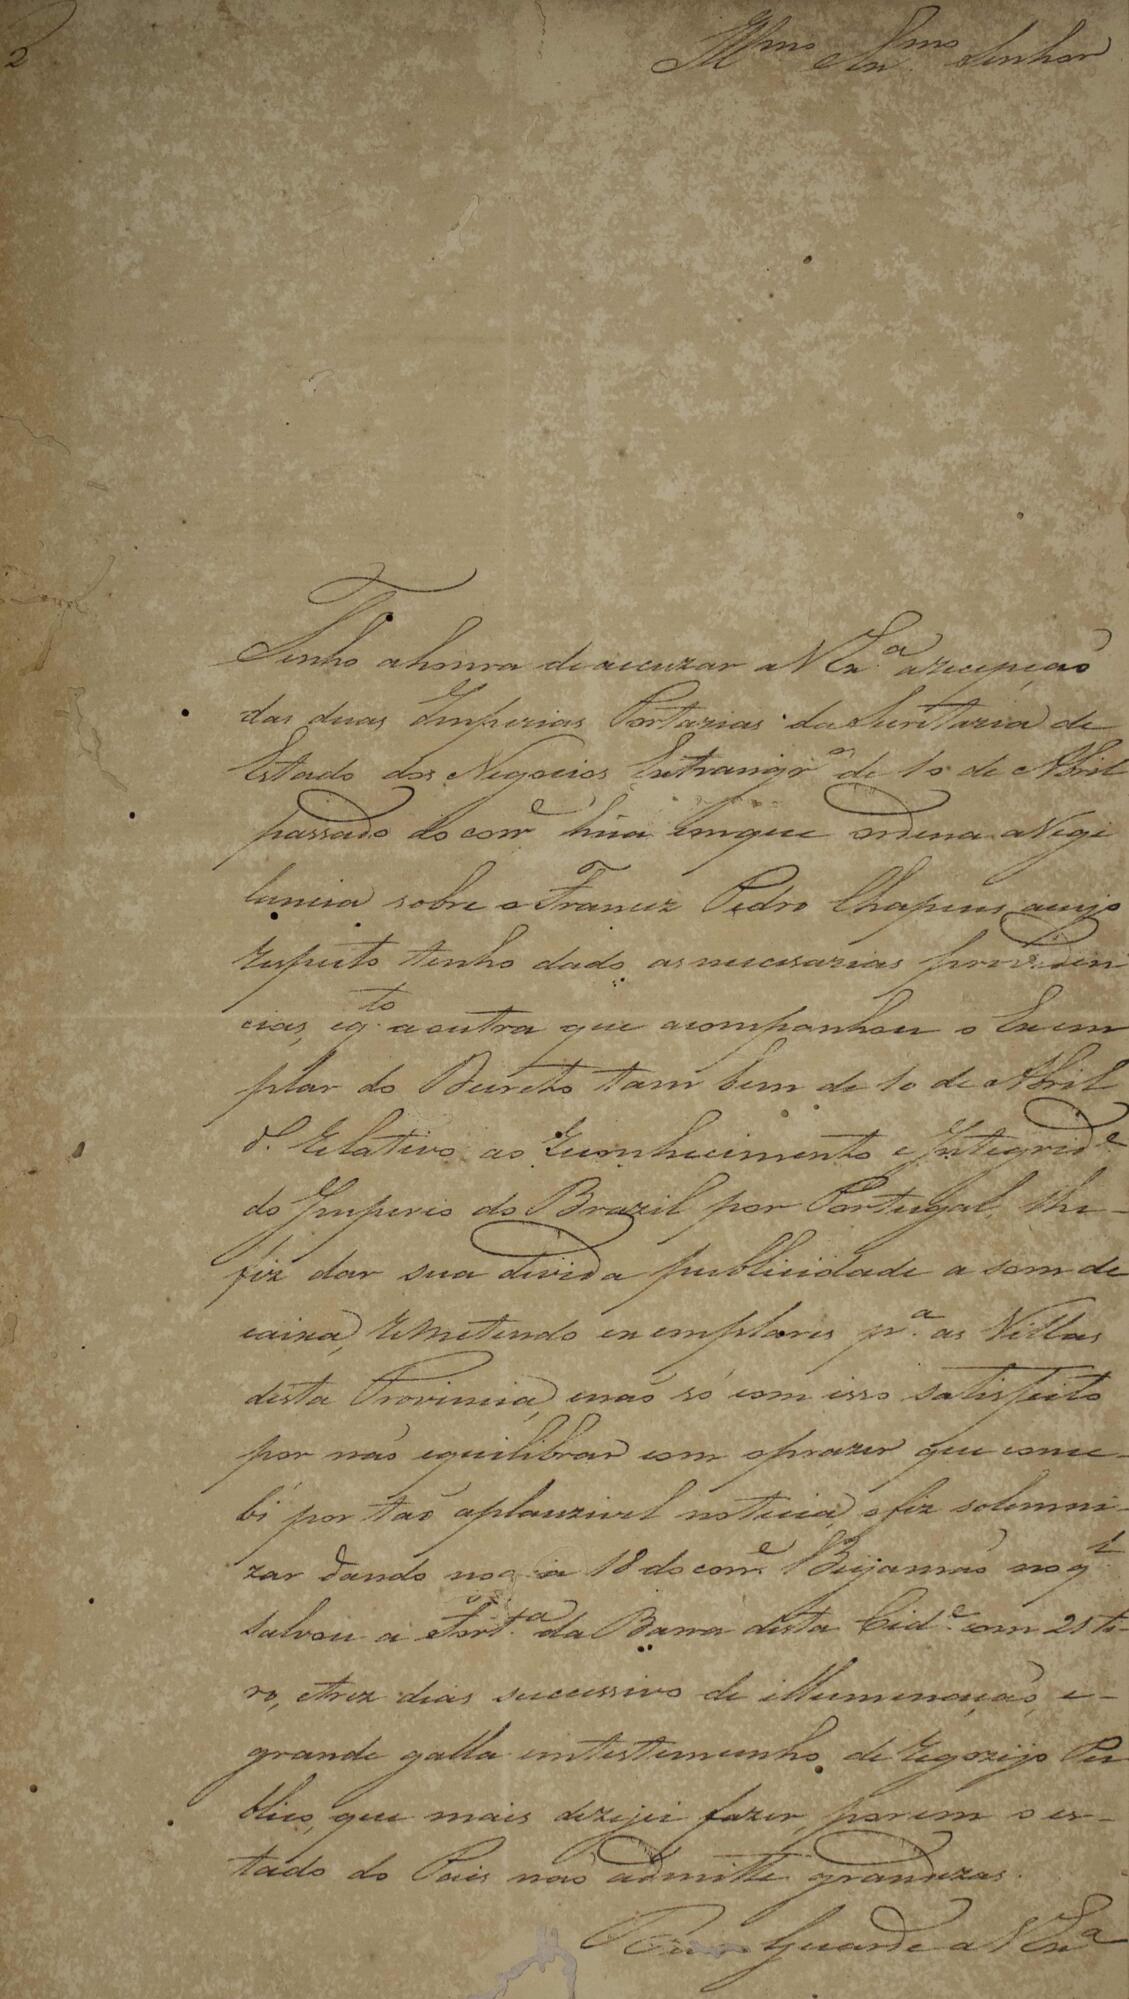 2
Illmo e Exmo Senhor
Tenho ahonra deaccuzar a V Exa. arecepção
das duas Imperias Portarias da Secretaria de
Estado dos Negocios Extrangros de 10 de Abril
passado do corre hũa emque ordena aVegi
lancia sobre o Francez Pedro Chapeus, acujo
respeito tenho dado as necesarias providen
cias, eqto. aoutra que acompanhou o Exem
plar do Decreto tam bem de 10 de Abril
do. relativo ao reconhecimento e Integride
do Imperio do Brazil por Portugal, lhe-
fiz dar sua divida publicidade a som de
caixa, remetendo exemplares pa. as Villas
desta Provincia, enão só com isso satisfeito
por não equilibrar com oprazer que conce-
bi por tão aplauzivel noticia, ofiz solemni-
zar dando no dia 18 docorre. Bejamão noql
salvou a Forta. da Barra desta Cide. com 21 ti-
ro, etrez dias sucessivo de illumenação, e-
grande galla emtestemunho de regozijo Pu
blico, que mais dezejei fazer, porem o es-
tado do Pais não admitte grandezas.
Deos Guarde a V Exa